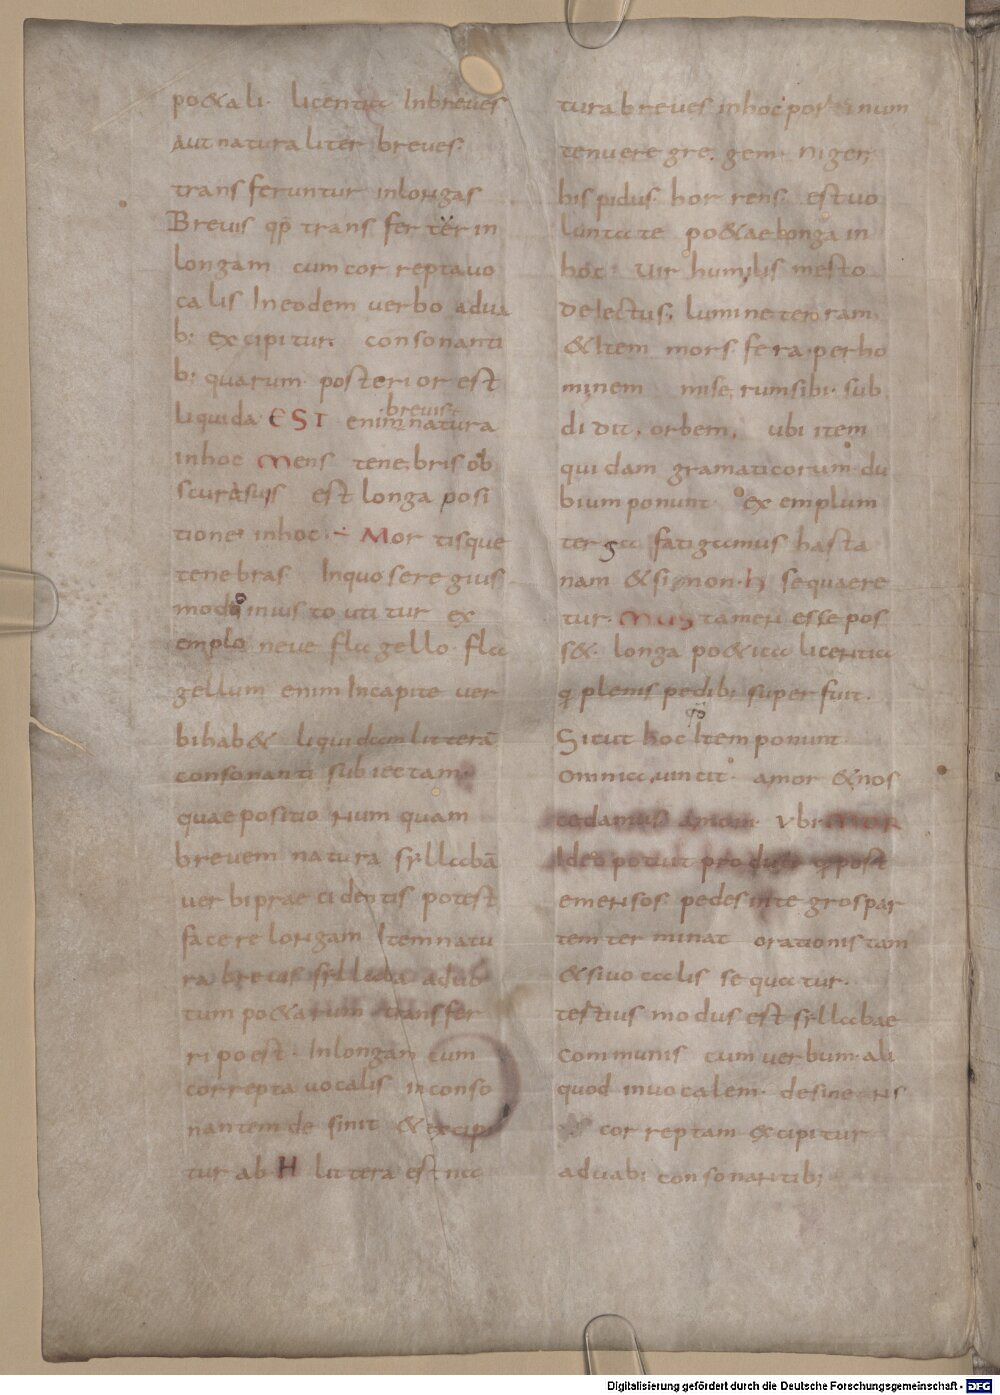 po&ali· licentia Inbreues
Aut naturaliter breues·
transferuntur inlongas
Breuis qp transferter in
longam cum correptauo
calis Ineodem uerbo adua
b; excipitur; consonanti
b; quarum posterior est
liquida EST enim breuis natura
inhoc Mens tenebris ob
scurasuis est longa posi
tione inhoc · Mortisque
tenebras Inquo seregius
modi inius to utitur ex
emplo neue flagello· fla
gellum enim Incapite uer
bihab& liquidam litterā
consonanti subiectam
quae positio Num quam
breuem natura syllabā
uerbi praecidentis potest
facere longam Item natu
ra breuis syllaba adub
tum po&arum transfer
ri po est· Inlongam cum
correpta uocalis inconso
nantem desinit & excipi
tur ab H littera est na
tura breues inhoc por num
tenuere gre. gem· niger
hispidus· horrens· estuo
luntate po&ae longa in
hoc· uir humilis mesto
delectus; lumine terram
& Item mors· fera· perho
minem miserumsibi· sub
didit, orbem, ubi item
quidam gramaticorum· du
bium ponunt exemplum
terga fatigamus hasta
nam & si non· h sequaere
tur· Mus tamen esse pos
s& longa po&ica licentia
q plenis pedib; superfuit.
Sicut hoc Item ponunt·
omnia, uincit· amor & nos
cedamus amori· Vbi MOR
Ideo potuit produci q post
emensos pedes integros par
tem terminat orationis tam
& si uocalis sequatur·
tertius modus est syllabae
communis cum uerbum· ali
quod inuocalem· desine
correptam excipitur
aduab; consonantib;
Digitalisierung gefördert durch die Deutsche Forschungsgemeinschaft - DFG